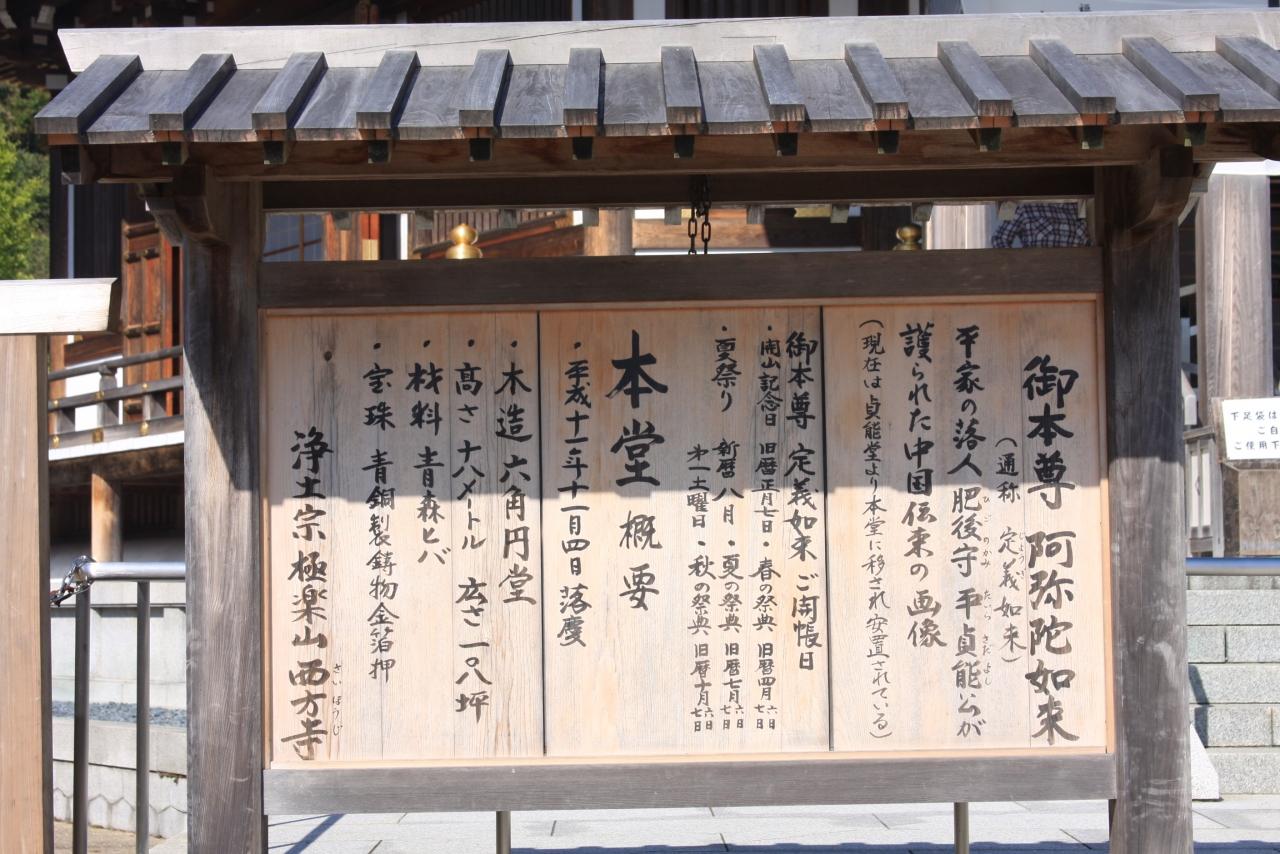 御本尊 阿弥陀如来
(通称 定義如来)
じょうぎ
平家の落人 肥後守 平 貞能公が
ひご のかみ たいら さだよし
護られた中国伝来の画像
(現在は貞能堂より本堂に移され安置されている)
御本尊 定義如来 ご開帳日
・開山記念日 旧暦正月七日・春の祭典 旧暦四月六日七日
・夏祭り 新暦八月 第一土曜日・夏の祭典 旧暦七月六日七日
・秋の祭典 旧暦十月六日七日
本堂概要
・平成十一年十一月四日 落慶
・木造六角円堂
・高さ 十八メートル 広さ 一〇八坪
・材料 青森ヒバ
・宝珠 青銅製鋳物金箔押
浄土宗 極楽山 西方寺
さいほうじ
下足袋は
ご自
ご使用下